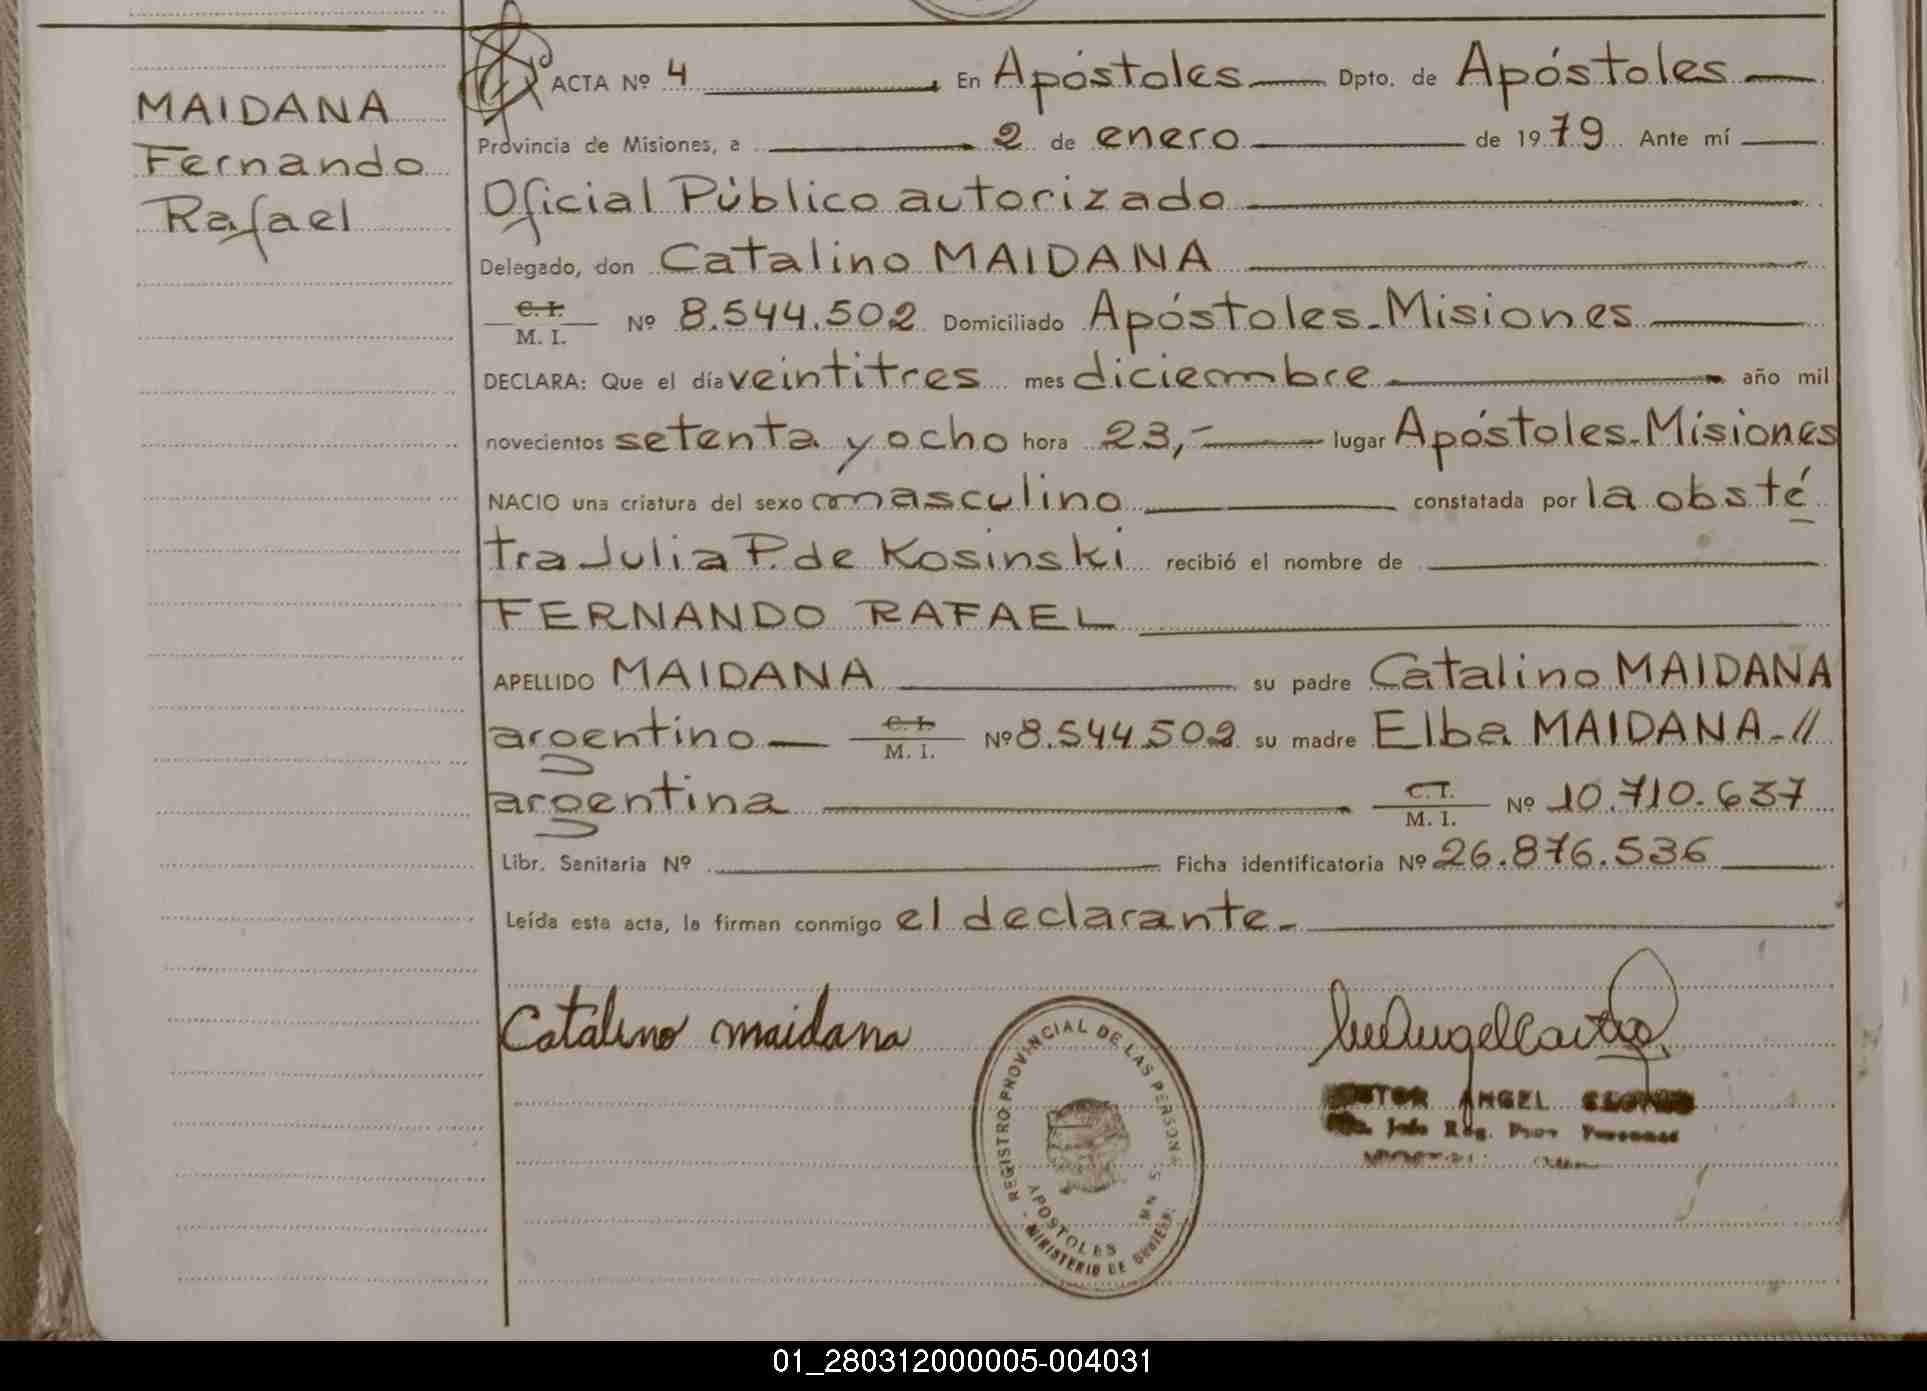 MAIDANA
Fernando
Rafael
ACTA Nº 4 En Apóstoles Dpto. de Apóstoles
Provincia de Misiones, a 2 de enero de 1979 Ante mí
Oficial Público autorizado
Delegado, don Catalino MAIDANA
C. I.
M. I. Nº 8.544.502 Domiciliado Apóstoles-Misiones
DECLARA: Que el día veintitres mes diciembre año mil
novecientos setenta y ocho hora 23,- lugar Apóstoles-Misiones
NACIO una criatura del sexo masculino constatada por la obsté
tra Julia P. de Kosinski recibió el nombre de
FERNANDO RAFAEL
APELLIDO MAIDANA su padre Catalino MAIDANA
argentino C. I.
M. I. Nº 8.544.502 su madre Elba MAIDANA-//
argentina C. I.
M. I. Nº 10.710.637
Libr. Sanitaria Nº Ficha identificatoria Nº 26.876.536
Leída esta acta, la firman conmigo el declarante-
Catalino maidana
REGISTRO PROVINCIAL DE LAS PERSONAS
APOSTOLES
MINISTERIO DE
ANGEL
Reg.
01_280312000005-004031